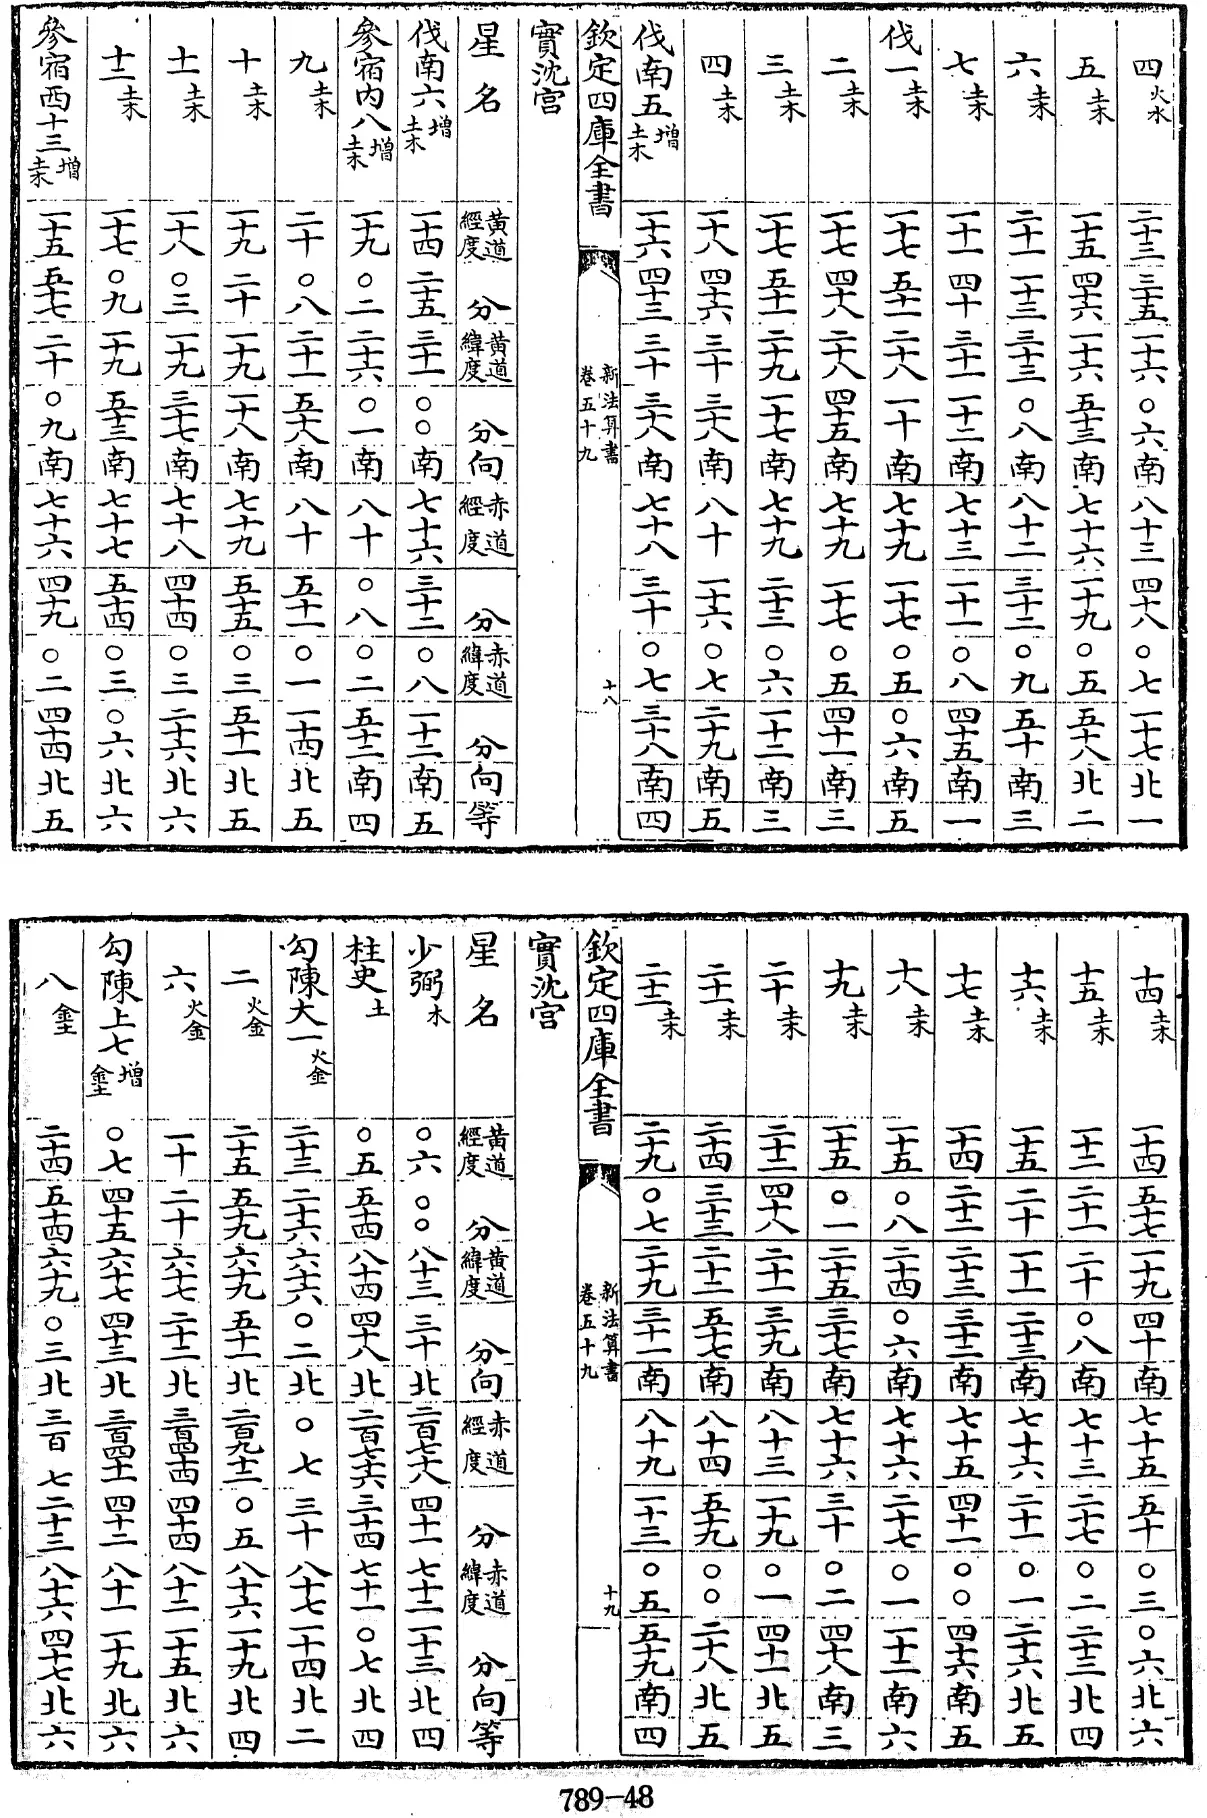 四 火水 二十三 三十五 一十六 〇六 南 八十三 四十八 〇七 一十七 北 一
五 土木 一十五 四十六 一十六 五十三 南 七十六 一十九 〇五 五十八 北 二
六 土木 二十一 一十三 三十三 〇八 南 八十二 三十二 〇九 五十 南 三
七 土木 一十一 四十 三十一 一十二 南 七十三 一十一 〇八 四十五 南 一
伐一 土木 一十七 五十一 二十八 一十 南 七十九 一十七 〇五 〇六 南 五
二 土木 一十七 四十八 二十八 四十五 南 七十九 一十七 〇五 四十一 南 三
三 土木 一十七 五十一 二十九 一十七 南 七十九 二十三 〇六 一十二 南 三
四 土木 一十八 四十六 三十 三十八 南 八十 一十六 〇七 二十九 南 五
伐南五 增 土木 一十六 四十三 三十 三十八 南 七十八 三十 〇七 三十八 南 四
欽定四庫全書 新法算書 卷五十九 十八
實沈宮
星名 黃道經度 分 黃道緯度 分 向 赤道經度 分 赤道緯度 分 向 等
伐南六 增 土木 一十四 二十五 三十一 〇〇 南 七十六 三十二 〇八 一十二 南 五
參宿內八 增 土木 一十九 〇二 二十六 〇一 南 八十 〇八 〇二 五十二 南 四
九 土木 二十 〇八 二十一 五十八 南 八十 五十一 〇一 一十四 北 五
十 土木 一十九 二十 一十九 一十八 南 七十九 五十五 〇三 五十一 北 五
十一 土木 一十八 〇三 一十九 三十七 南 七十八 四十四 〇三 二十六 北 六
十二 土木 一十七 〇九 一十九 五十三 南 七十七 五十四 〇三 〇六 北 六
參宿西十三 增 土木 一十五 五十七 二十 〇九 南 七十六 四十九 〇二 四十四 北 五
十四 土木 一十四 五十七 一十九 四十 南 七十五 五十 〇三 〇六 北 六
十五 土木 一十二 二十一 二十 〇八 南 七十三 二十七 〇二 二十三 北 四
十六 土木 一十五 二十 二十一 二十三 南 七十六 二十一 〇一 二十六 北 五
十七 土木 一十四 二十二 二十三 三十二 南 七十五 四十一 〇〇 四十六 南 五
十八 土木 一十五 〇八 二十四 〇六 南 七十六 二十七 〇一 一十一 南 六
十九 土木 一十五 〇一 二十五 三十七 南 七十六 三十 〇二 四十八 南 三
二十 土木 二十二 四十八 二十一 三十九 南 八十三 一十九 〇一 四十一 北 五
二十一 土木 二十四 三十三 二十二 五十七 南 八十四 五十九 〇〇 二十八 北 五
二十二 土木 二十九 〇七 二十九 三十一 南 八十九 一十三 〇五 五十九 南 四
欽定四庫全書 新法算書 卷五十九 十九
實沈宮
星名 黃道經度 分 黃道緯度 分 向 赤道經度 分 赤道緯度 分 向 等
少弼 水 〇六 〇〇 八十三 三十 北 二百七十八 四十一 七十二 一十三 北 四
柱史 土 〇五 五十四 八十四 四十八 北 二百七十六 三十四 七十一 〇七 北 四
勾陳大一 火金 二十三 二十六 六十六 〇二 北 〇七 三十 八十七 一十四 北 二
二 火金 二十五 五十九 六十九 五十一 北 二百九十二 〇五 八十六 一十九 北 四
六 火金 一十 二十 六十七 二十二 北 三百四十四 四十四 八十二 一十五 北 六
勾陳上七 增 金土 〇七 四十五 六十七 四十三 北 三百四十一 四十二 八十一 一十九 北 六
八 金土 二十四 五十四 六十九 〇三 北 三百七 二十三 八十六 四十七 北 六
789-48